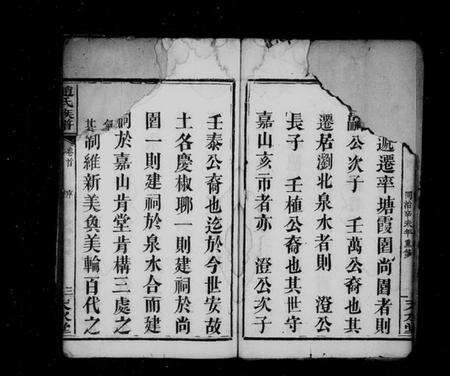 遯遷率塘霞園尚園者則
公次子 壬萬公裔也其
遷居瀏北泉水者則 澄公
長子 壬植公裔也其世守
嘉山亥市者亦 澄公次子
壬泰公裔也迄於今世安故
土各慶椒聊一則建祠於尚
園一則建祠於泉水合而建
祠於嘉山肯堂肯構三處之
其制維新美奐美輪百代之
趙氏族譜
卷首
序